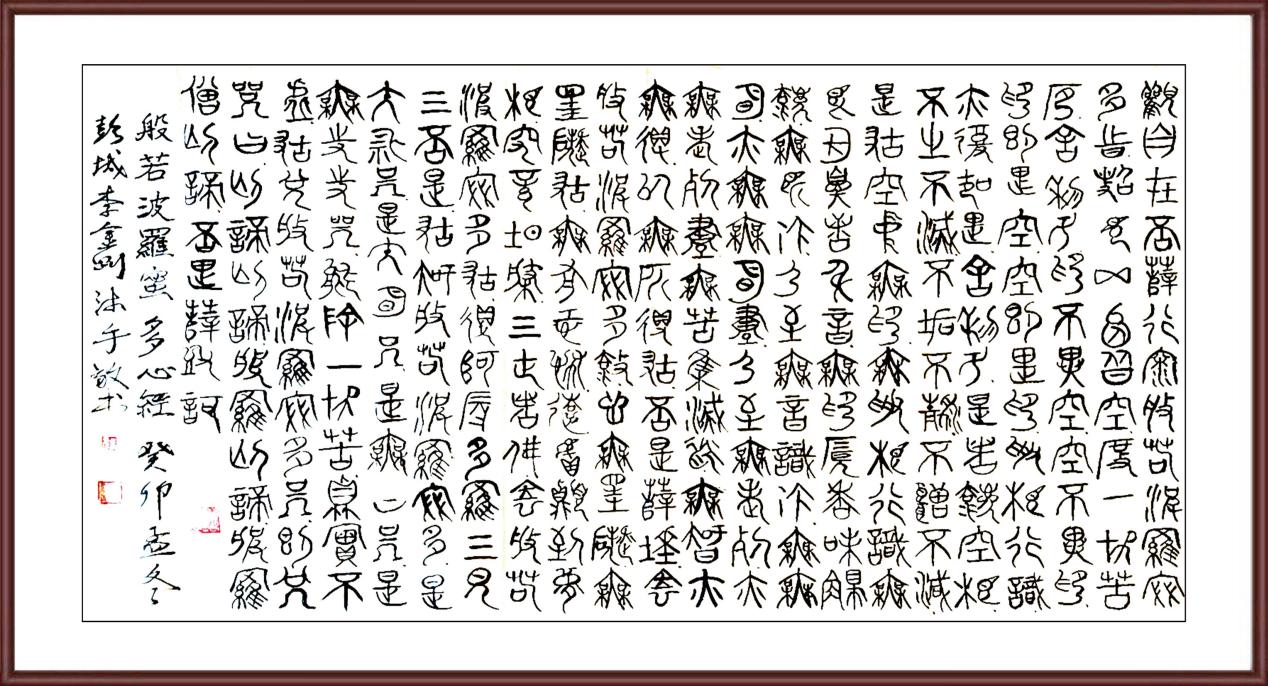 觀自在菩薩行深般若波羅蜜
多時照見五蘊皆空度一切苦
厄舍利子色不異空空不異色
色即是空空即是色受想行識
亦復如是舍利子是諸法空相
不生不滅不垢不淨不增不減
是故空中無色無受想行識無
眼耳鼻舌身意無色聲香味觸
法無眼界乃至無意識界無無
明亦無無明盡乃至無老死亦
無老死盡無苦集滅道無智亦
無得以無所得故菩提薩埵依
般若波羅蜜多故心無罣礙無
罣礙故無有恐怖遠離顛倒夢
想究竟涅槃三世諸佛依般若
波羅蜜多故得阿耨多羅三藐
三菩提故知般若波羅蜜多是
大神咒是大明咒是無上咒是
無等等咒能除一切苦真實不
虛故說般若波羅蜜多咒即說
咒曰揭諦揭諦波羅揭諦波羅
僧揭諦菩提薩婆訶
般若波羅蜜多心經 癸卯孟冬
彭城李金剛沐手敬書